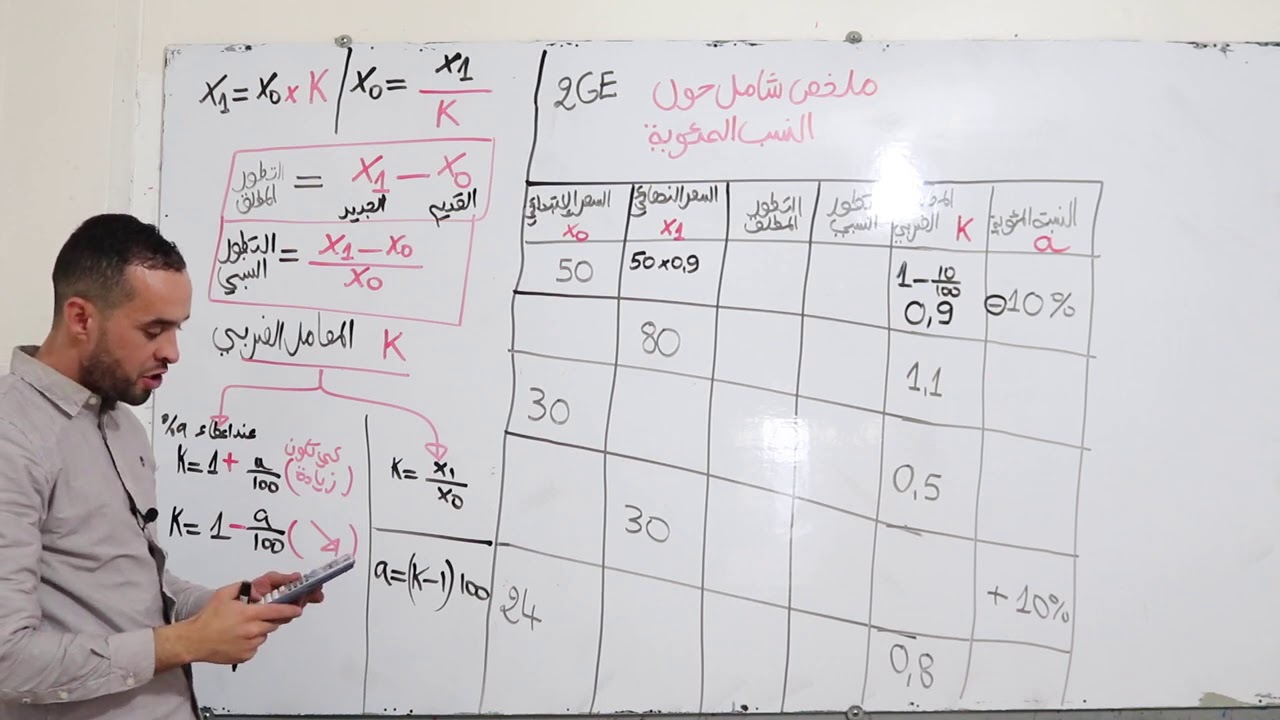 X1 = X0 × K | X0 = X1/K
التطور المطلق = X1 − X0
الجديد القديم
التطور النسبي = X1 − X0 / X0
المعامل الضربي K
عند اعطاء a%
K = 1 + a/100 (كي تكون زيادة)
K = 1 − a/100 (↘)
K = X1/X0
a = (K−1) 100
2GE ملخص شامل حول
النسب المئوية
السعر الإبتدائي X0 | السعر النهائي X1 | التطور المطلق | التطور النسبي | الضربي K | النسبة المئوية a
50 | 50×0,9 | 1 − 10/100 0,9 | −10%
80 | 1,1
30 | 0,5
30 | +10%
24 | 0,8